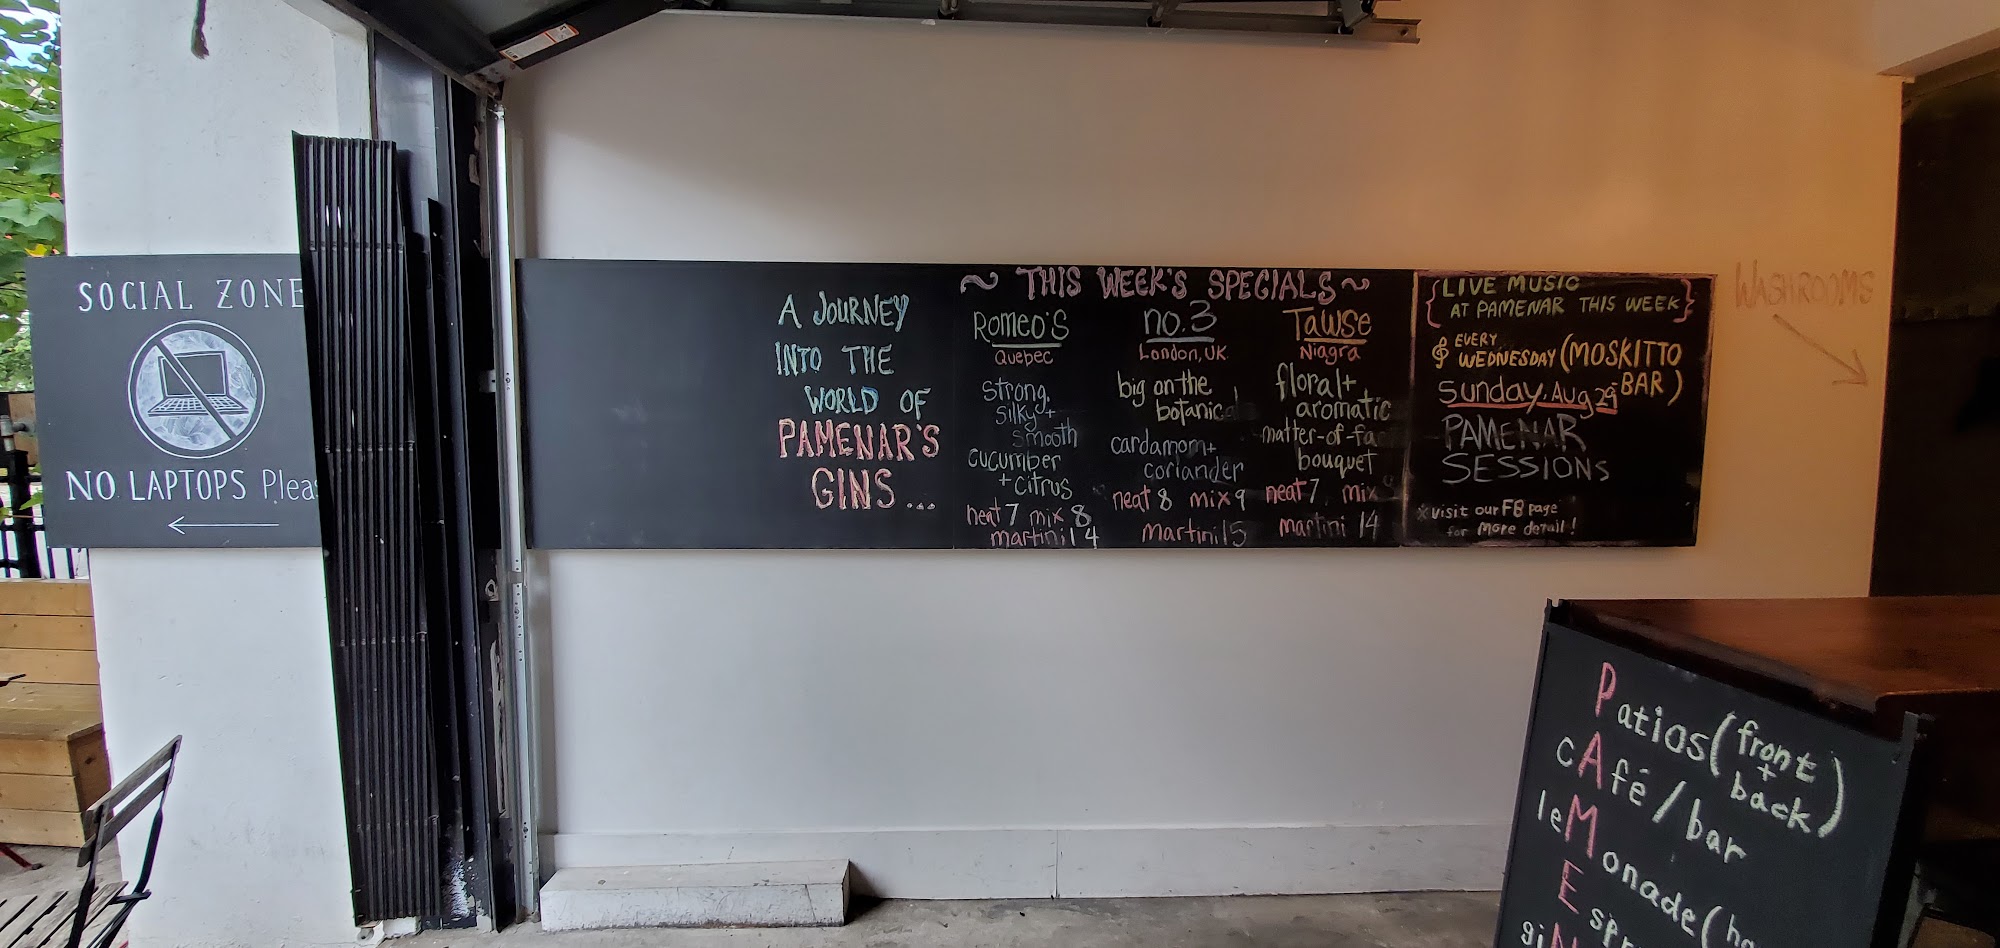 SOCIAL ZONE
NO LAPTOPS
A JOURNEY
INTO THE
WORLD OF
PAMENAR'S
GINS...
~ THIS WEEK'S SPECIALS ~
Romeo's
Quebec
strong,
silky +
smooth
cucumber
+ citrus
neat 7 mix 8
martini 14
no. 3
London, UK
big on the
botanical
cardamom +
coriander
neat 8 mix 9
martini 15
Tawse
Niagra
floral +
aromatic
matter-of-fa
bouquet
neat 7 mix
martini 14
{LIVE MUSIC
AT PAMENAR THIS WEEK}
EVERY
WEDNESDAY (MOSKITTO
BAR)
Sunday, Aug 29
PAMENAR
SESSIONS
*visit our FB page
for more detail!
WASHROOMS
Patios (front
+
back)
cAfé/bar
leMonade (ho
Espr
giN